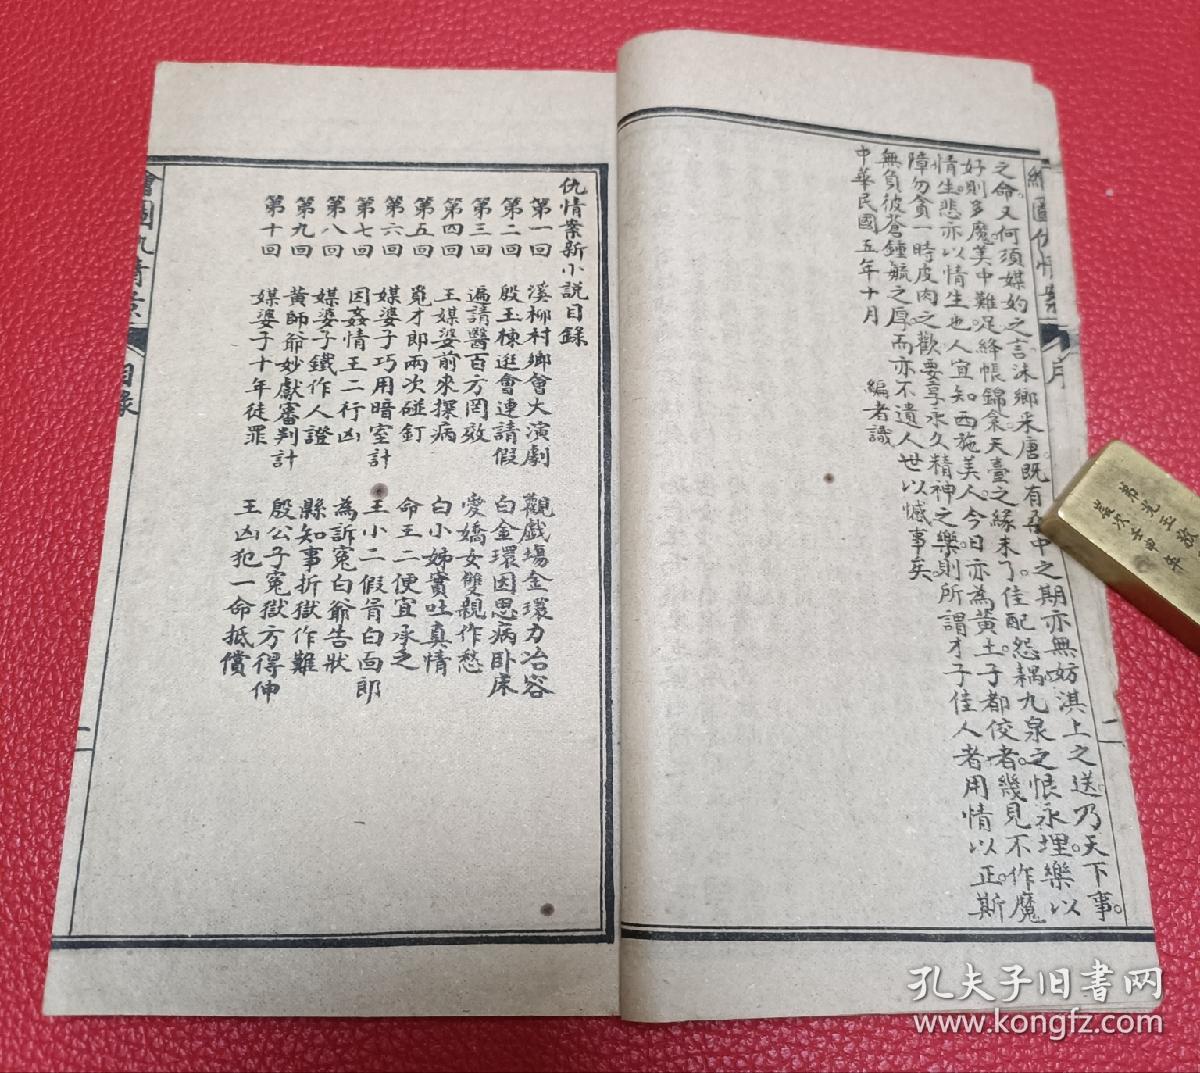 之命又何須媒妁之言沬鄉采唐既有桑中之期亦無妨淇上之送乃天下事
好則多魔美中難足絳帳錦衾天臺之緣未了佳配怨耦九泉之恨永埋樂以
情生悲亦以情生也人宜知西施美人今日亦為黃土子都佼者幾見不作魔
障勿貪一時皮肉之歡要享永久精神之樂則所謂才子佳人者用情以正斯
無負彼蒼鍾毓之厚而亦不遺人世以憾事矣
中華民國五年十月 編者識
序
二
仇情案新小説目錄
第一回 溪柳村鄉會大演劇 觀戲塲金環力冶容
第二回 殷玉棟逛會連請假 白金環因思病卧床
第三回 遍請醫百方罔效 愛嬌女雙親作愁
第四回 王媒婆前來探病 白小姊實吐真情
第五回 覓才郎兩次碰釘 命王二便宜承之
第六回 媒婆子巧用暗室計 王小二假胄白面郎
第七回 因姦情王二行凶 為訴冤白爺告狀
第八回 媒婆子鐵作人證 縣知事折獄作難
第九回 黃師爺妙獻審判計 殷公子冤獄方得伸
第十回 媒婆子十年徒罪 王凶犯一命抵償
目錄
二
孔夫子旧书网
www.kongfz.com